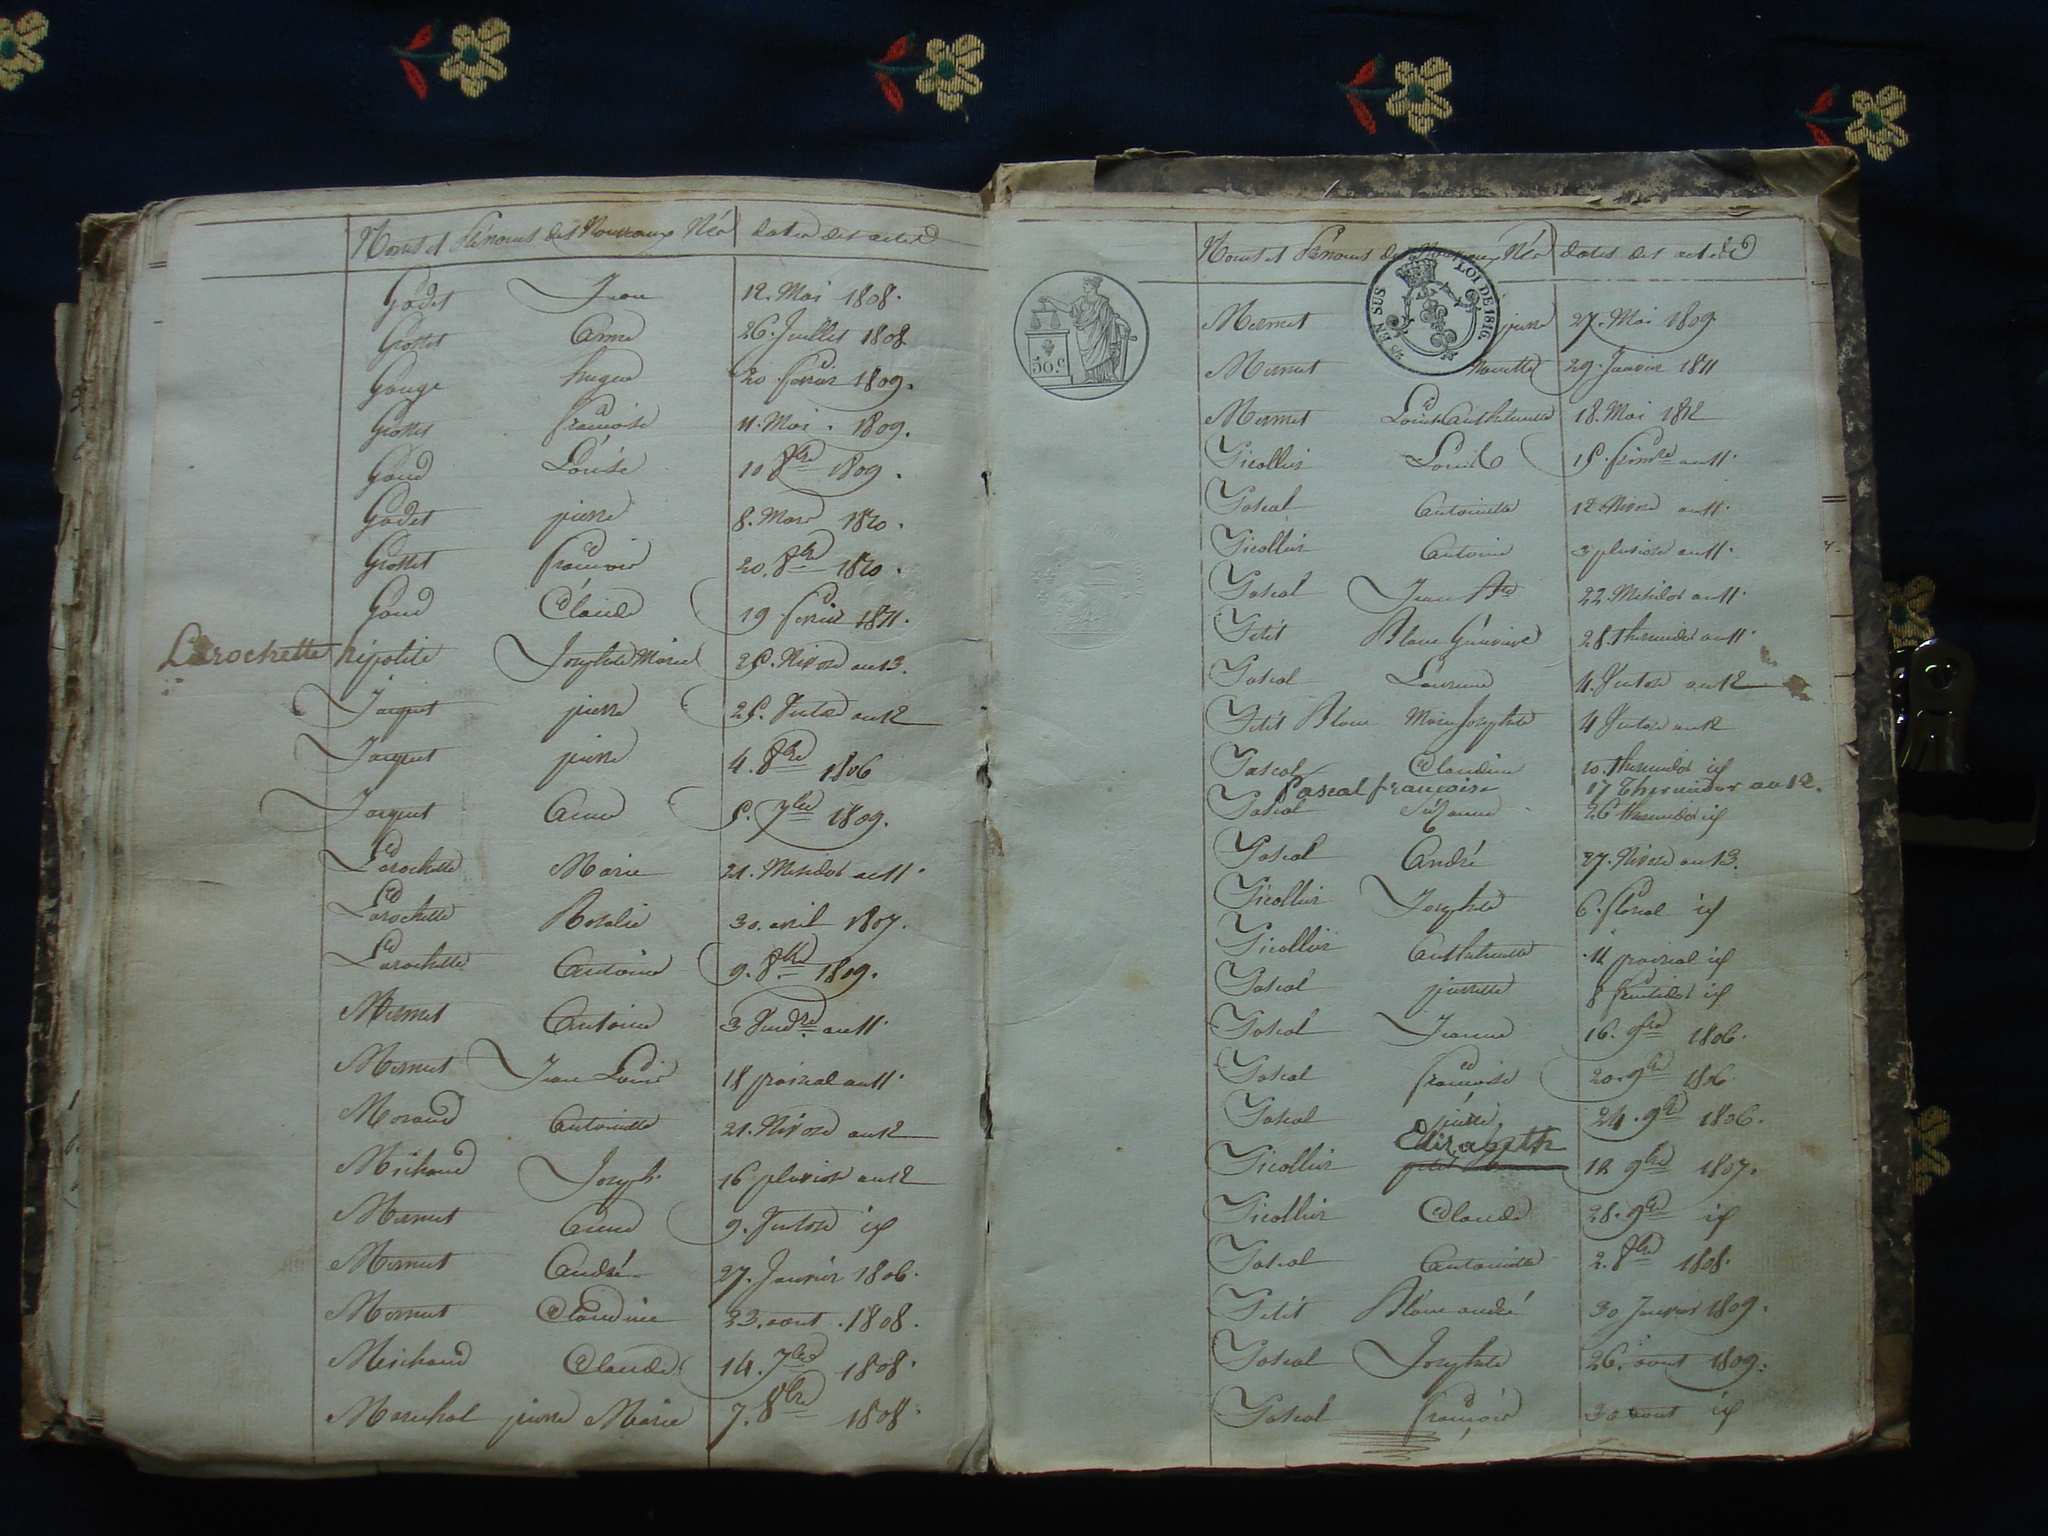 Noms et Prénoms des Nouveaux Nés dates des actes
Godet Jean 12. Mai 1808.
Grosset Anne 26. Juillet 1808
Gouge hugue 20 fevrier 1809.
Grosset françoise 11. Mai. 1809.
Goud Louise 10 8bre 1809.
Godet pierre 8. Mars 1810.
Grosset françois 20. 8bre 1810.
Goud Claude 19 fevrier 1811.
Larochette hipolite Josephte Marie 25. Nivose an 13.
Jaquet pierre 25. Ventose an 12
Jaquet pierre 4. 8bre 1806
Jaquet Anne 5. 7bre 1809.
Larochette Marie 21. Messidor an 11.
Larochette Rosalie 30. avril 1807.
Larochette Antoine 9. 8bre 1809.
Mermet Antoine 3 Vendre an 11.
Mermet Jean Louis 18 prairial an 11.
Moraud Antoinette 21. Nivose an 12
Michaud Joseph. 16 pluviose an 12
Mermet Anne 9. Ventose id
Mermet André 27. Janvier 1806.
Mermet Claudine 23. aout. 1808.
Michaud Claude 14. 7bre 1808.
Marechal pierre Marie 7. 8bre 1808.
Noms et Prénoms des Nouveaux Nés dates des actes
50.c
25 EN SUS LOI DE 1816.
Mermet pierre 27. Mai 1809
Mermet 29. Janvier 1811
Mermet Louise Anthelmette 18. Mai 1812
Picollier Louis 15. frimre an 11.
Pascal Antoinette 12 Nivose an 11.
Picollier Antoine 3 pluviose an 11.
Pascal Jean Bte 22 Messidor an 11.
Petit Blanc Genevieve 28. thermidor an 11.
Pascal Laurence 4. Ventose an 12
Petit Blanc Marie Josephte 4 Ventose an 12
Pascal Claudine 10. thermidor id
Pascal françoise 17 Thermidor an 12.
Pascal Suzanne 26 thermidor id
Pascal André 27. Nivose an 13.
Picollier Josephte 6. floréal id
Picollier Anthelmette 11 prairial id
Pascal pierrette 8 fructidor id
Pascal Jeanne 16. 9bre 1806.
Pascal françoise 20. 9bre 1806
Pascal pierre 24. 9bre 1806.
Elizabeth
Picollier petit 12 9bre 1807.
Picollier Claude 28. 9bre id
Pascal Antoinette 2. 8bre 1808.
Petit Blanc andré 30 Janvier 1809.
Pascal Josephte 26. aout 1809.
Pascal françois 30 aout id